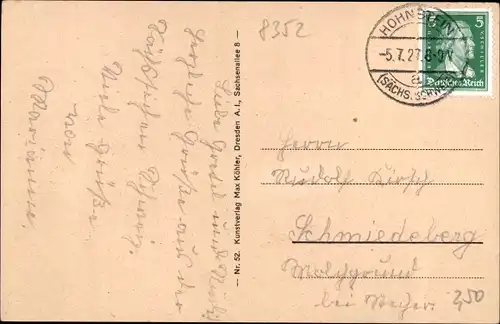 8352
Liebe Gretel und Rudi
Herzliche Grüße aus der
Sächsischen Schweiz.
Viele Grüße
von
Marianne.
— Nr. 52. Kunstverlag Max Köhler, Dresden A. I., Sachsenallee 8 —
HOHNSTEIN
-5.7.27.8-9V
a
(SÄCHS. SCHWEIZ)
5
Deutsches Reich
Herrn
Rudolf Kirsch
Schmiedeberg
bei
2,50